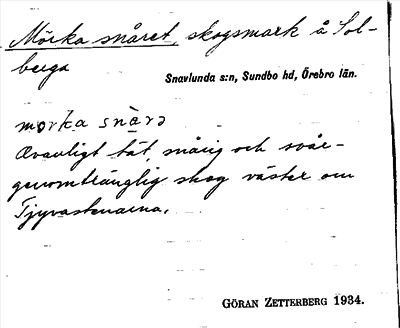 Mörka snåret, skogsmark å Sol-
berga
Snavlunda s:n, Sundbo hd, Örebro län.
mörka snårə
Ovanligt tät, snårig och svår-
genomtränglig skog väster om
Tjyvastenarna.
GÖRAN ZETTERBERG 1934.